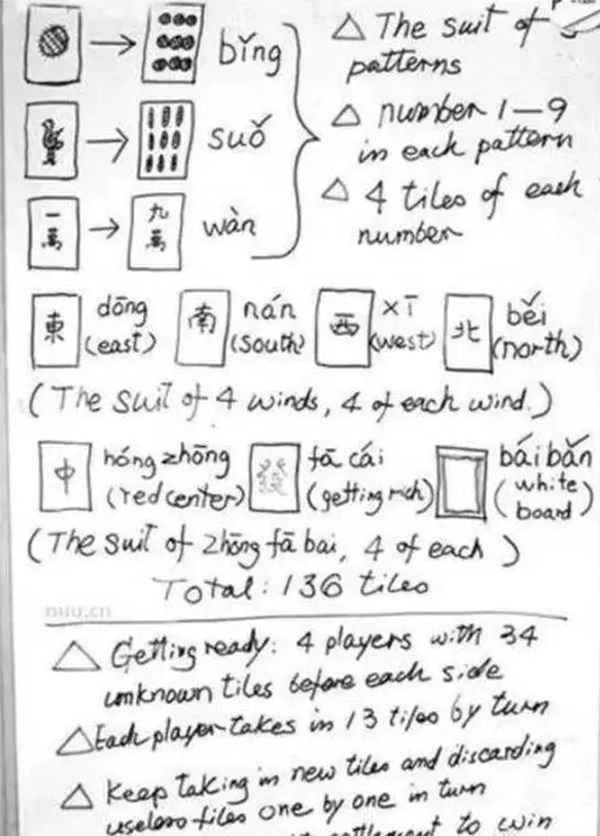 bǐng
△ The suit of
patterns
suǒ
△ number 1-9
in each pattern
一萬 → 九萬 wàn
△ 4 tiles of each
number
東 dōng (east)
南 nán (south)
西 xī (west)
北 běi (north)
(The suit of 4 winds, 4 of each wind.)
中 hóng zhōng (red center)
發 fā cái (getting rich)
bái bǎn (white board)
(The suit of zhōng fā bai, 4 of each)
Total: 136 tiles
nuu.cn
△ Getting ready: 4 players with 34
unknown tiles before each side
△ Each player takes in 13 tiles by turn
△ Keep taking in new tiles and discarding
useless tiles one by one in turn
settlement to win